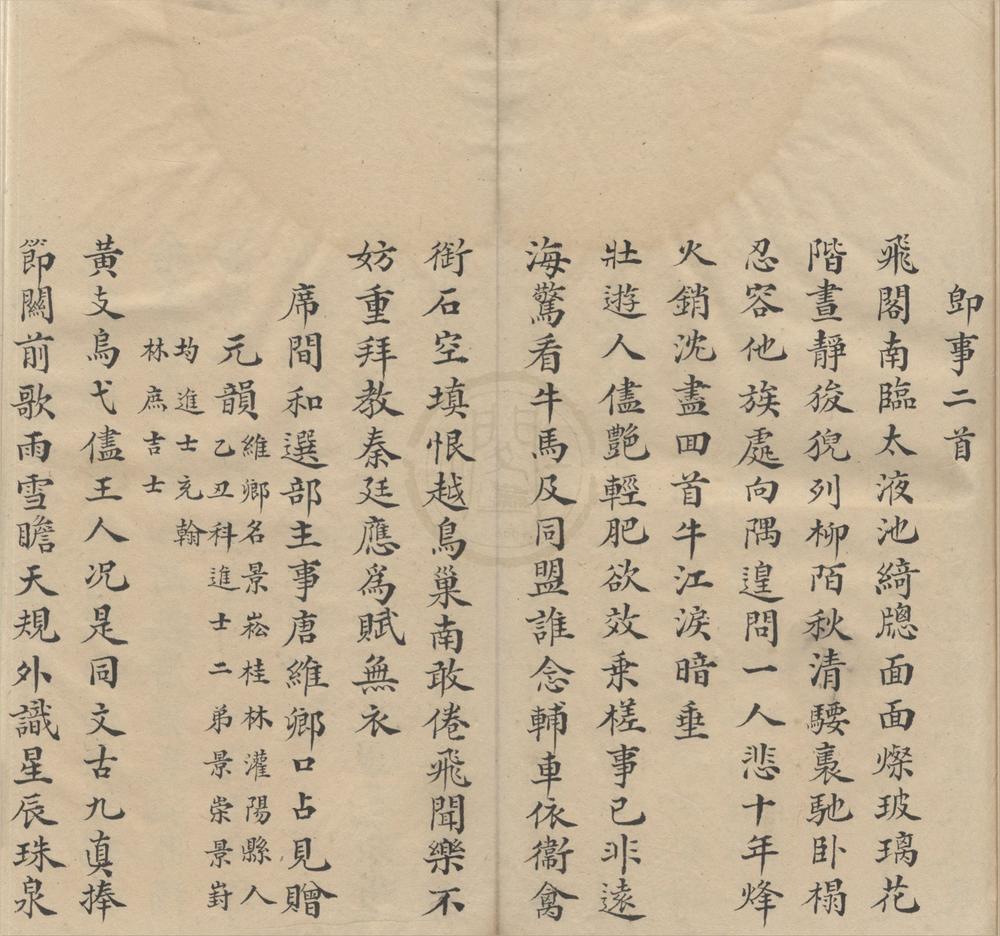 即事二首
飛閣南臨太液池綺牕面面燦玻璃花
階晝静狻猊列柳陌秋清騕褭馳卧榻
忍容他族處向隅遑問一人悲十年烽
火銷沈盡回首牛江淚暗垂
壯遊人儘艷輕肥欲效乗槎事已非遠
海驚看牛馬及同盟誰念輔車依衞禽
銜石空填恨越鳥巢南敢倦飛聞樂不
妨重拜教秦廷應爲賦無衣
席間和選部主事唐維鄉口占見贈
元韻維鄉名景崧桂林灌陽縣人
乙丑科進士二弟景崇景崶
均進士充翰
林庶吉士
黃支烏弋儘王人況是同文古九真捧
節關前歌雨雪瞻天規外識星辰珠泉